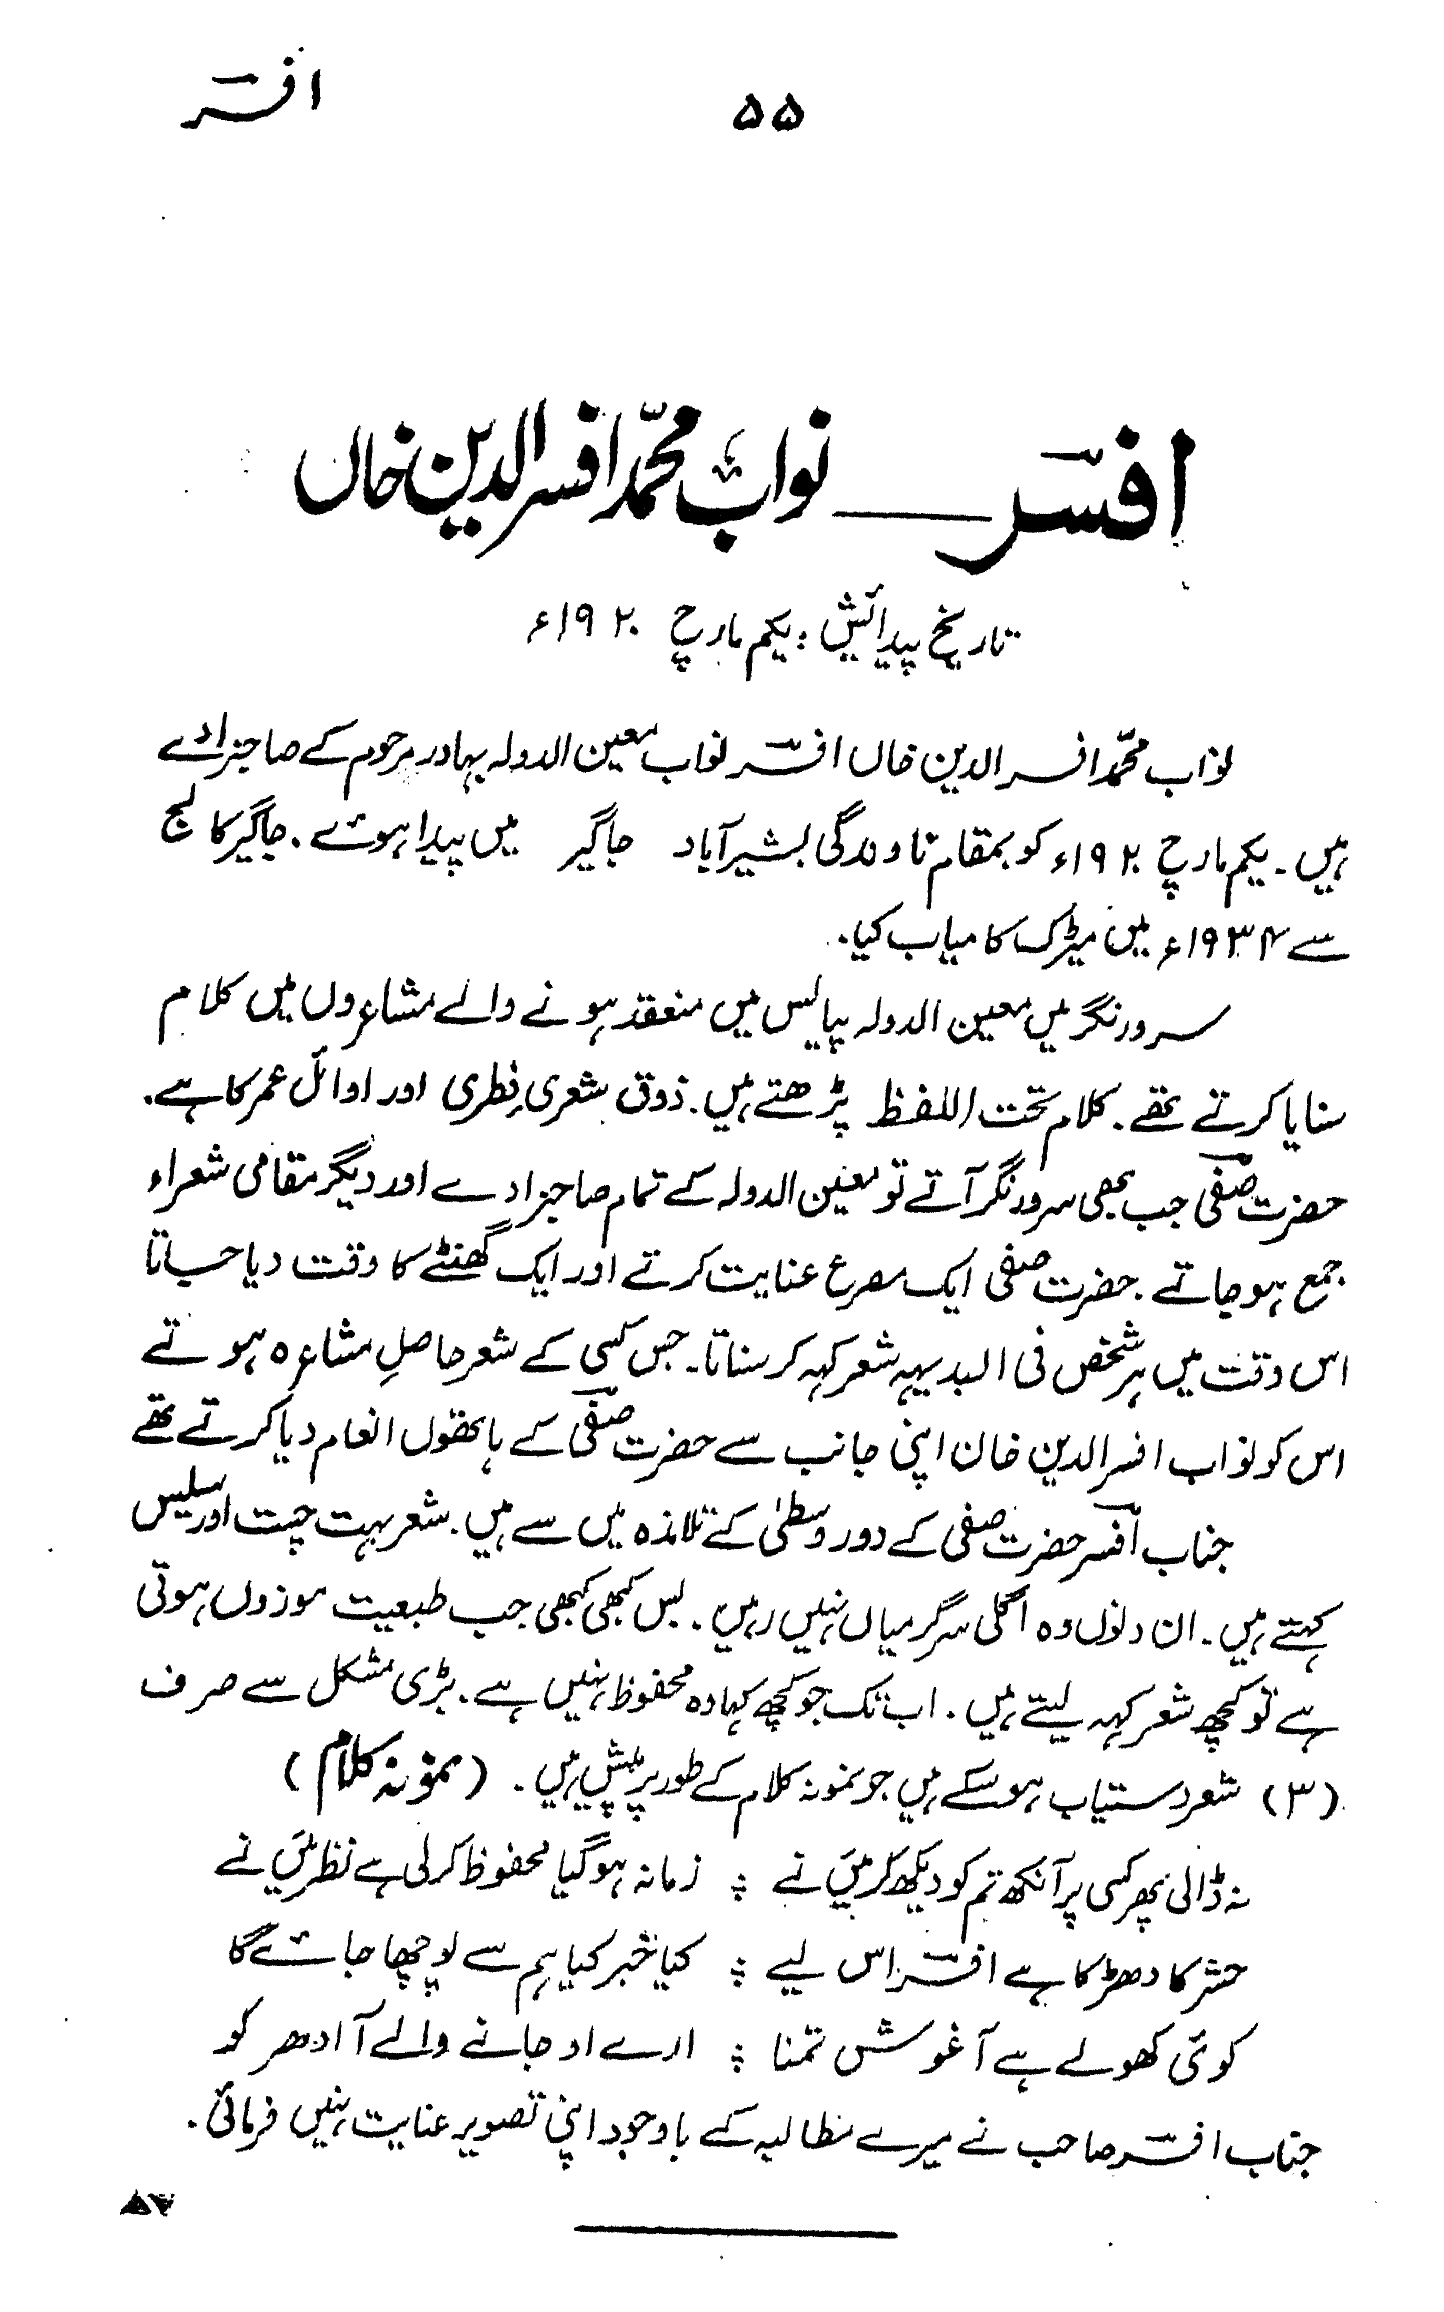 افسرؔ
۵۵
افسرؔ ــــ نواب محمّد افسر الدین خاں
تاریخ پیدائش : یکم مارچ ۱۹۲۰ء
نواب محمّد افسر الدین خاں افسرؔ نواب معین الدولہ بہادر مرحوم کے صاحبزادے
ہیں ۔ یکم مارچ ۱۹۲۰ء کو بمقام تاوندگی بشیرآباد جاگیر میں پیدا ہوئے ۔ جاگیر کالج
سے ۱۹۳۴ء میں میٹرک کامیاب کیا ۔
سرور نگر میں معین الدولہ پیالیس میں منعقد ہونے والے مشاعروں میں کلام
سنایا کرتے تھے ۔ کلام تحت اللفظ پڑھتے ہیں ۔ ذوق شعری فطری اور اوائل عمر کا ہے ۔
حضرت صفیؔ جب بھی سرور نگر آتے تو معین الدولہ کے تمام صاحبزادے اور دیگر مقامی شعراء
جمع ہو جاتے ۔ حضرت صفیؔ ایک مصرع عنایت کرتے اور ایک گھنٹے کا وقت دیا جاتا
اس وقت میں ہر شخص فی البدیہہ شعر کہہ کر سناتا ۔ جس کسی کے شعر حاصلِ مشاعرہ ہوتے
اس کو نواب افسر الدین خان اپنی جانب سے حضرت صفیؔ کے ہاتھوں انعام دیا کرتے تھے
جناب افسرؔ حضرت صفیؔ کے دور وسطیٰ کے تلامذہ میں سے ہیں ۔ شعر بہت چست اور سلیس
کہتے ہیں ۔ ان دنوں وہ اگلی سرگرمیاں نہیں رہیں ۔ بس کبھی کبھی جب طبعیت موزوں ہوتی
ہے تو کچھ شعر کہہ لیتے ہیں ۔ اب تک جو کچھ کہا وہ محفوظ نہیں ہے ۔ بڑی مشکل سے صرف
(۳) شعر دستیاب ہوسکے ہیں جو نمونہ کلام کے طور پر پیش ہیں ۔ (نمونہ کلام)
نہ ڈالی پھر کسی پر آنکھ تم کو دیکھ کر میں نے ؛ زمانہ ہوگیا محفوظ کرلی ہے نظر میں نے
حشر کا دھڑکا ہے افسرؔ اس لیے ؛ کیا خبر کیا ہم سے پوچھا جائے گا
کوئی کھولے ہے آغوش تمنا ؛ ارے او جانے والے آ ادھر کو
جناب افسرؔ صاحب نے میرے مطالبہ کے باوجود اپنی تصویر عنایت نہیں فرمائی ۔